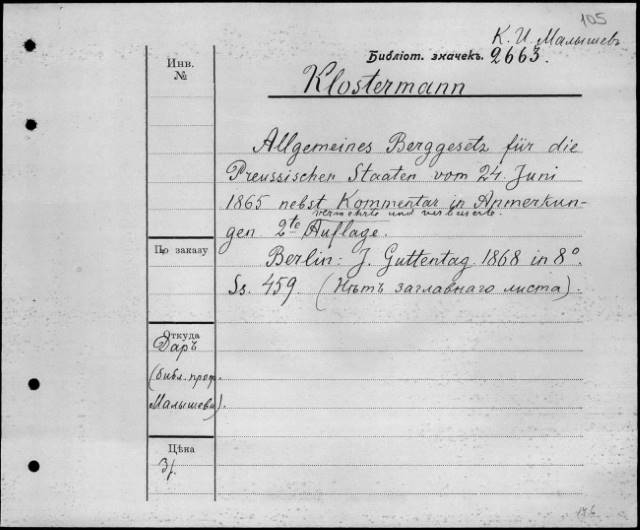 105
К. И. Малышевъ
Библіот. значекъ. 2663.
Инв.
№
Klostermann
Allgemeines Berggesetz für die
Preussischen Staaten vom 24. Juni
1865 nebst Kommentar in Anmerkun-
vermehrte und verbesserte.
gen 2te Auflage.
По заказу
Berlin: J. Guttentag 1868 in 8°.
Ss. 459 (Нѣтъ заглавнаго листа).
Откуда
Даръ
(библ. проф.
Малышева).
Цѣна